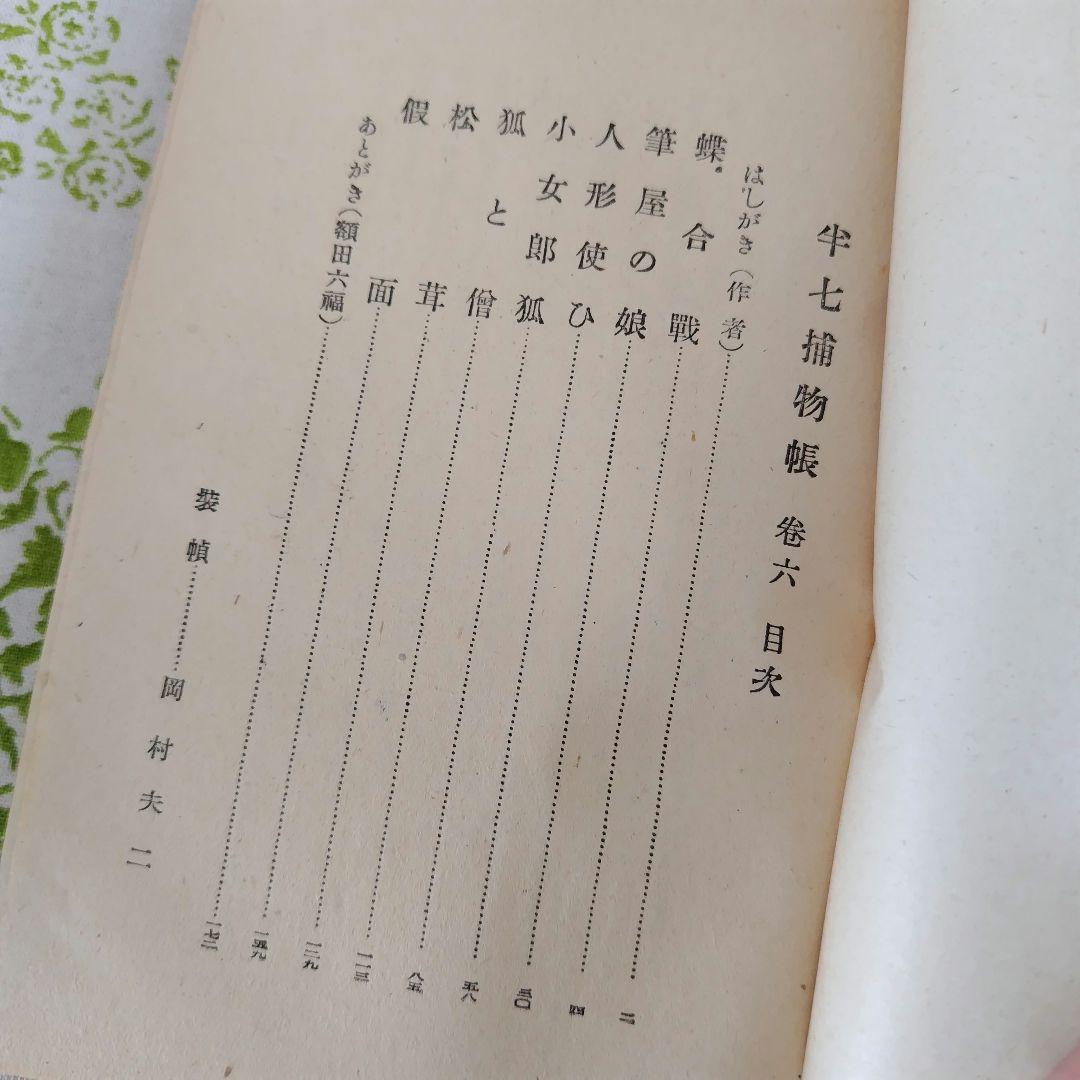 半七捕物帳 卷六 目次
はしがき(作者)……二
蝶合戰……四
筆屋の娘……三〇
人形使ひ……五八
小女郎狐……八五
狐と僧……一一三
松茸……一三九
假面……一五九
あとがき(額田六福)……一七二
裝幀……岡村夫二